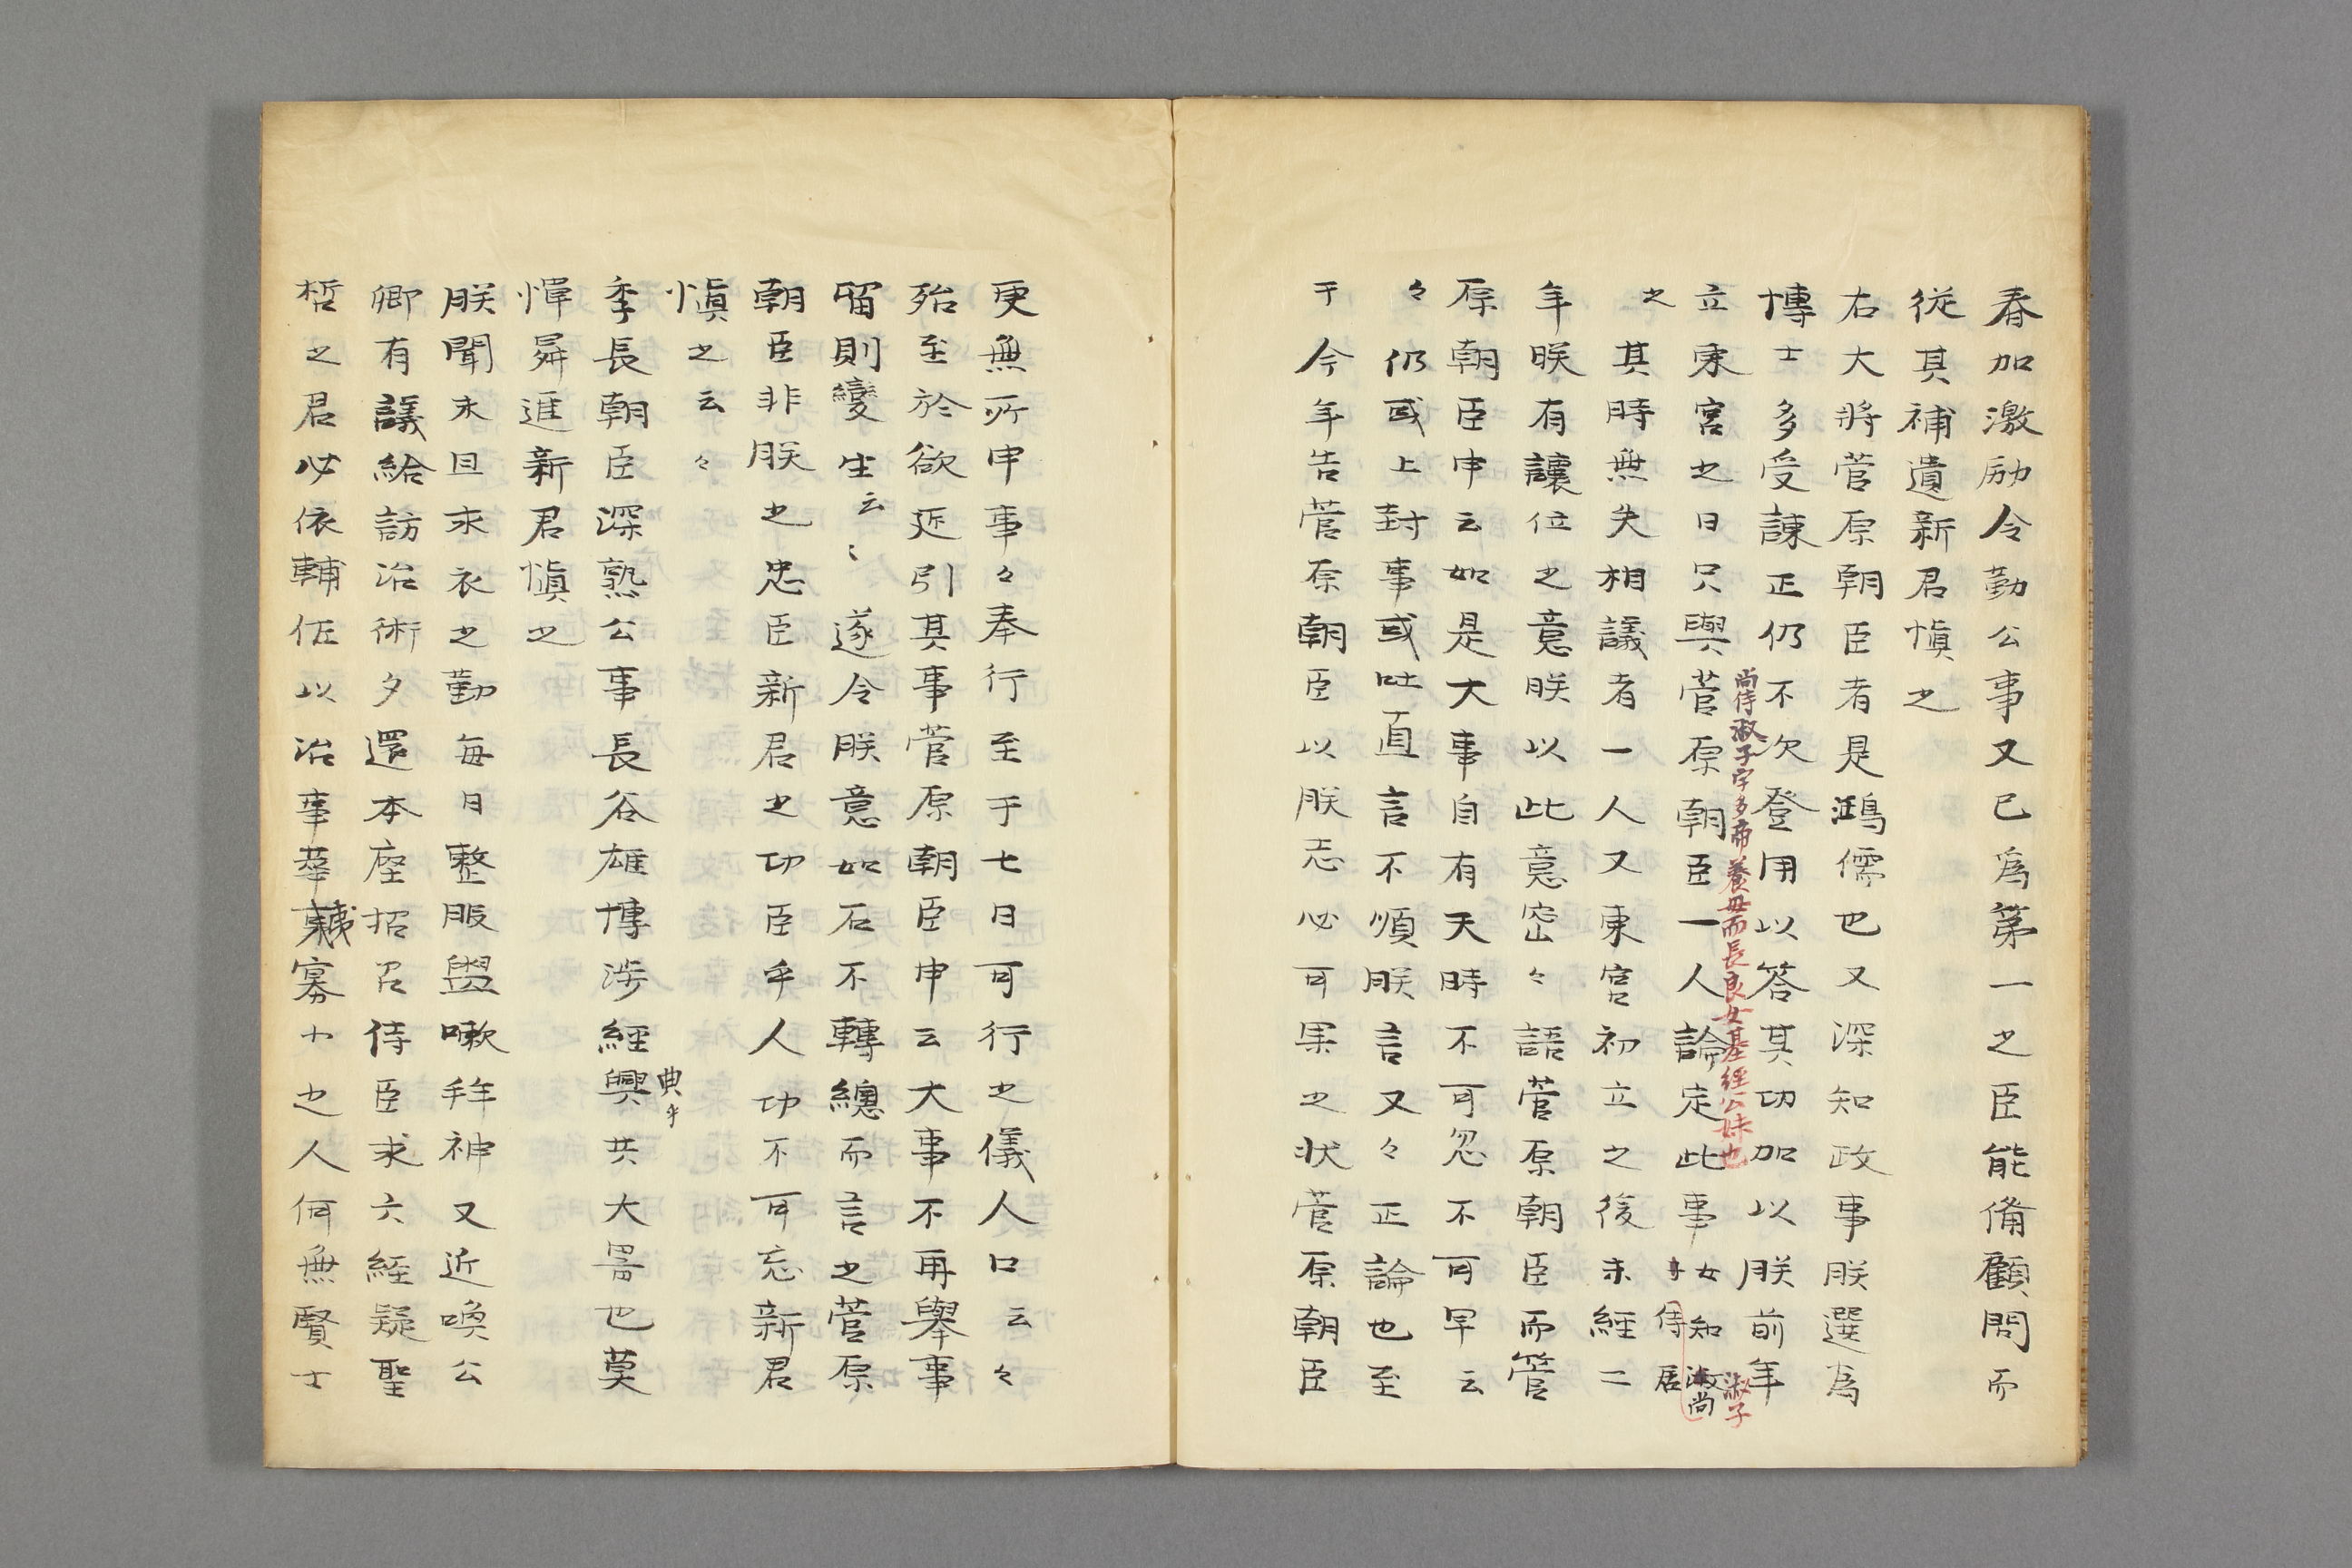 春加激励令勤公事又已爲第一之臣能備顧問而
従其補遺新君慎之
右大將菅原朝臣者是鴻儒也又深知政事朕選爲
博士多受諫正仍不次登用以答其功加以朕前年
立東宮之日只與菅原朝臣一人論定此事女知尚侍居
尚侍淑子宇多帝養母而長良女基經公妹也
淑子
之其時無共相議者一人又東宮初立之後未經二
年朕有讓位之意朕以此意密々語菅原朝臣而菅
原朝臣申云如是大事自有天時不可忽不可早云
々仍或上封事或吐直言不順朕言又々正論也至
于今年告菅原朝臣以朕志必可果之状菅原朝臣
更無所申事々奉行至于七日可行之儀人口云々
殆至於欲延引其事菅原朝臣申云大事不再舉事
留則變生云〻遂令朕意如石不轉總而言之菅原
朝臣非朕之忠臣新君之功臣乎人功不可忘新君
慎之云々
季長朝臣深熟公事長谷雄博渉經興共大器也莫
典乎
憚昇進新君慎之
朕聞未旦求衣之勤每日整服盥嗽拜神又近喚公
卿有議給訪治術夕還本座招召侍臣求六經疑聖
哲之君必依輔佐以治事華寡小之人何無賢士